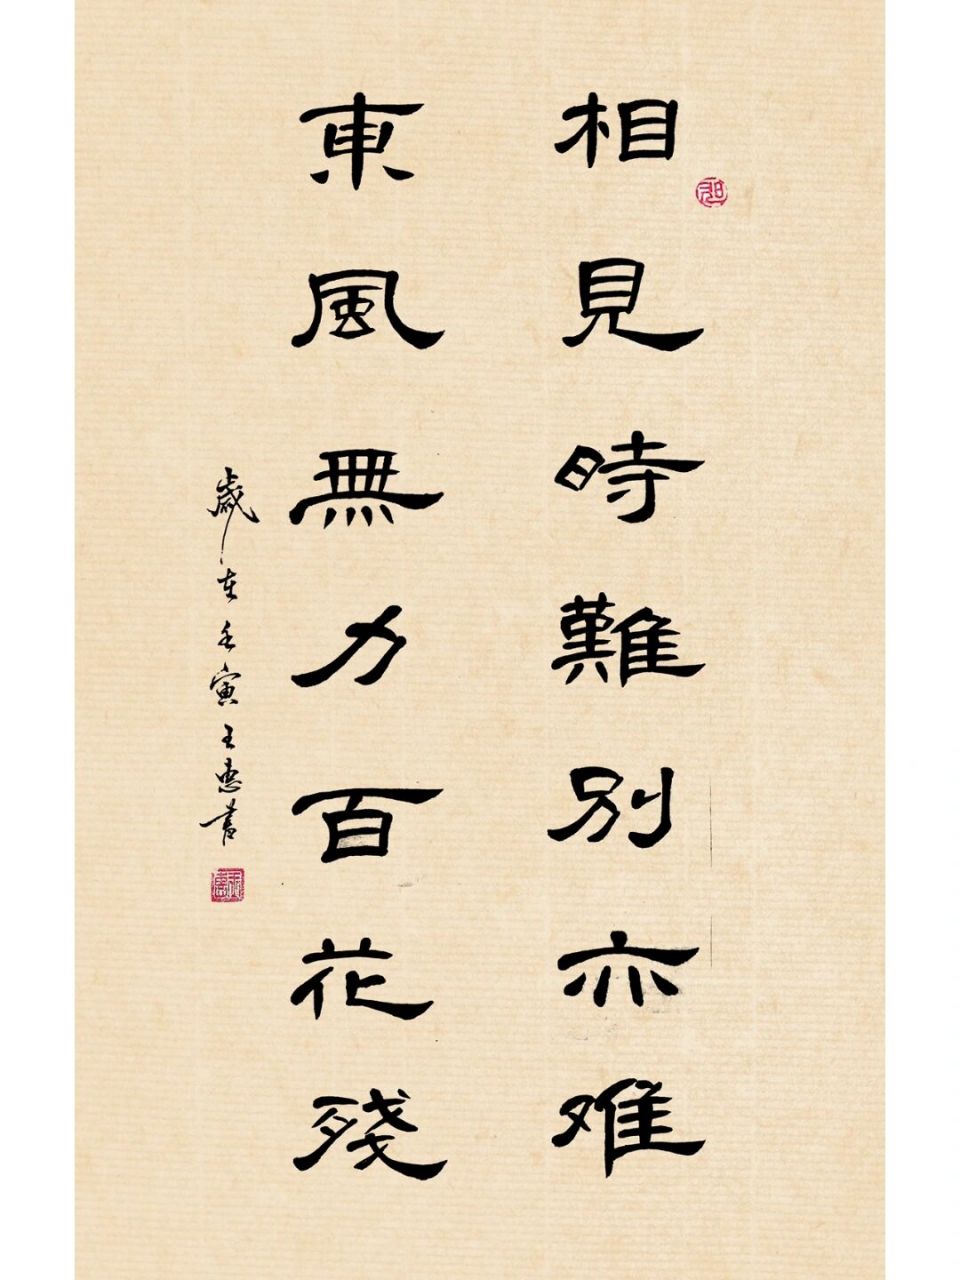 相見時難別亦难
東風無力百花殘
歲在壬寅王惠書